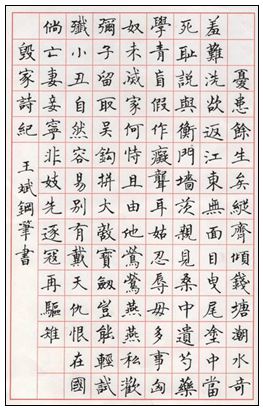 憂患餘生矣縱齊傾錢塘潮水奇
羞難洗欲返江東無面目曳尾塗中當
死恥說與衡門墻茨親見桑中遺芍藥
學青盲假作癡聾耳姑忍辱毋多事匈
奴未滅家何恃且由他鶯鶯燕燕私歡
彌子留取吳鈎拼大敵寶劍豈能輕試
殲小丑自然容易別有戴天仇恨在國
倘亡妻妾寧非妓先逐寇再驅雉
毀家詩紀 王斌鋼筆書